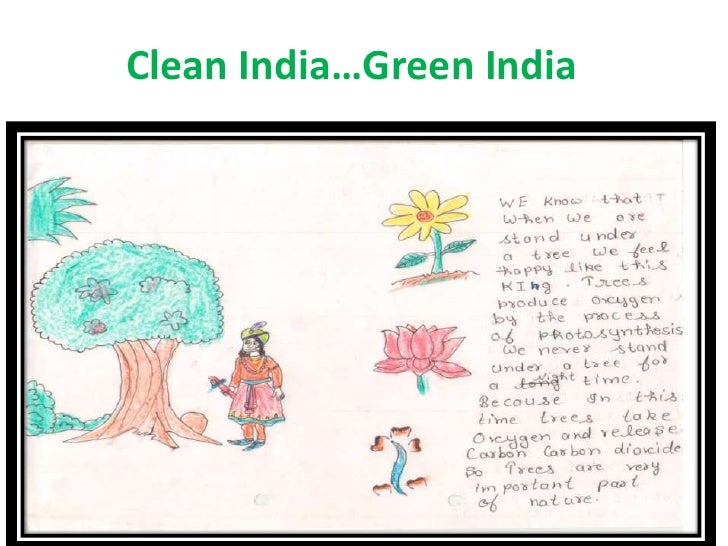 Clean India...Green India
WE Know that
When we are
stand under
a tree we feel
happy like this
KIng. Trees
produce oxygen
by the process
of photosynthesis
We never stand
under a tree for
a long night time.
Because In this
time trees take
Oxygen and release
Carbon Carbon dioxide
So Trees are very
important part
of nature.